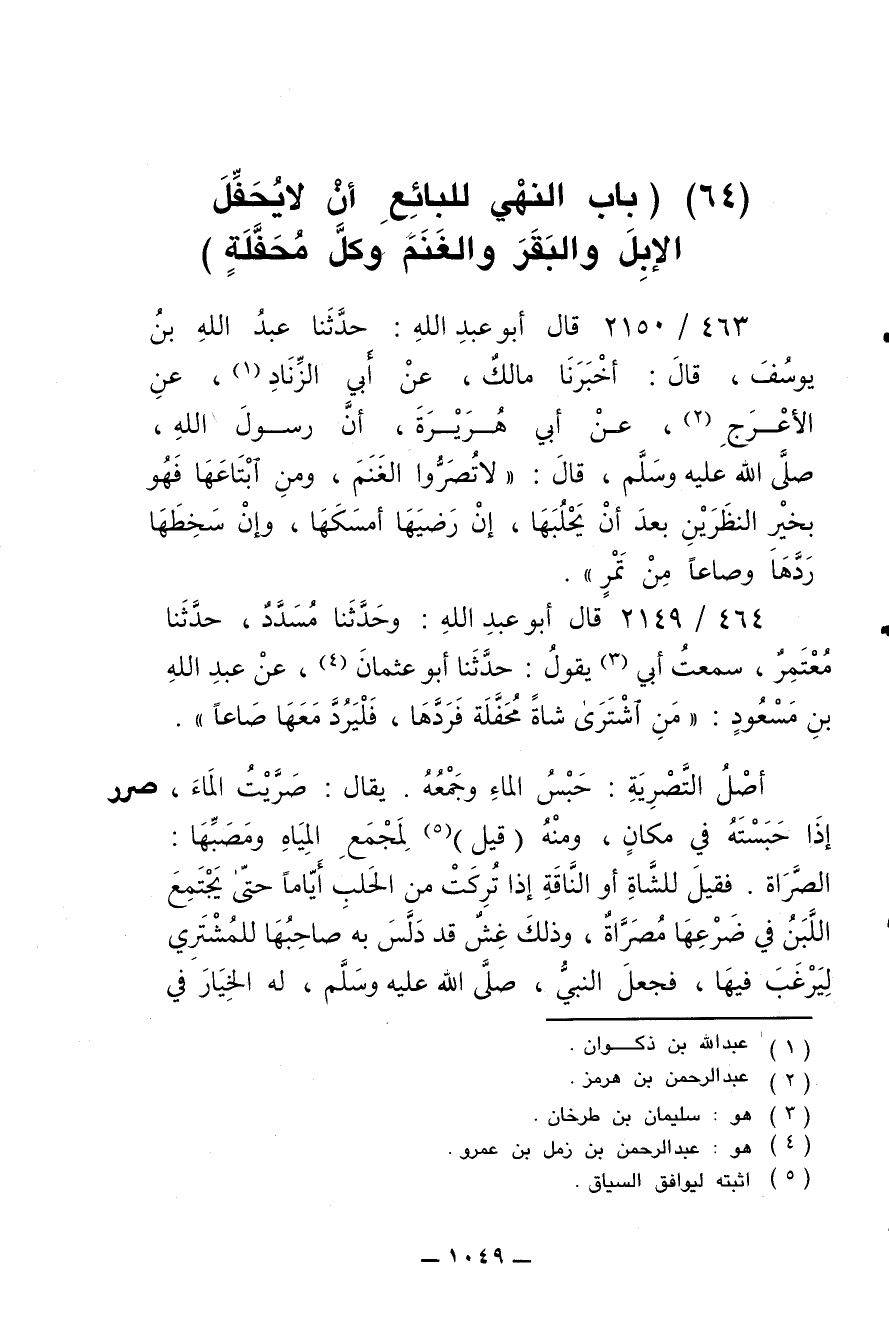 (٦٤) ( باب النهْي للبائِعِ أنْ لايُحَفِّلَ
الإبِلَ والبَقَرَ والغَنَمَ وكلَّ مُحَفَّلَةٍ )
٤٦٣ / ٢١٥٠ قال أبو عبدِ اللهِ : حدَّثَنا عبدُ اللهِ بنُ
يوسُفَ ، قالَ : أخْبَرَنَا مالكٌ ، عنْ أَبي الزِّنَادِ (١) ، عنِ
الأعْـــرَجِ (٢) ، عـنْ أبي هُـــرَيْـــرَةَ ، أنَّ رســـولَ اللهِ ،
صلَّى الله عليه وسَلَّم ، قالَ : « لاتُصَرُّوا الغَنَمَ ، ومنِ ٱبْتَاعَهَا فَهُو
بخيْرِ النظَرَيْنِ بعدَ أنْ يَحْلُبَهَا ، إنْ رَضيَهَا أمسَكَهَا ، وإنْ سَخِطَهَا
رَدَّهَا وصاعاً مِنْ تَمْرٍ » .
٤٦٤ / ٢١٤٩ قال أبو عبدِ اللهِ : وحَدَّثَنا مُسَدَّدٌ ، حدَّثَنا
مُعْتَمِرٌ ، سمعتُ أبي (٣) يقولُ : حدَّثَنا أبو عثمانَ (٤) ، عنْ عبدِ اللهِ
بنِ مَسْعُودٍ : « مَنِ ٱشْتَرَىٰ شاةً مُحَفَّلَة فَرَدَّهَا ، فَلْيَرُدَّ مَعَهَا صَاعاً » .
أصْلُ التَّصْرِيَةِ : حَبْسُ الماءِ وجَمْعُهُ . يقال : صَرَّيْتُ المَاءَ ، صرر
إذَا حَبَسْتَهُ في مكانٍ ، ومنْهُ ( قيل )(٥) لِمَجْمَعِ المِيَاهِ ومَصَبِّهَا :
الصَّرَاة . فقيلَ للشَّاةِ أو النَّاقَةِ إذا تُرِكَتْ من الحَلبِ أَيَّاماً حتىّٰ يَجْتَمِعَ
اللَّبَنُ في ضَرْعِهَا مُصَرَّاةٌ ، وذلكَ غِشٌ قد دَلَّسَ به صاحِبُهَا للمُشْتَرِي
لِيَرْغَبَ فيهَا ، فجعلَ النبيُّ ، صلَّى الله عليه وسَلَّم ، له الخِيَارَ في
(١) عبدالله بن ذكـــوان .
(٢) عبدالرحمن بن هرمز .
(٣) هو : سليمان بن طرخان .
(٤) هو : عبدالرحمن بن زمل بن عمرو .
(٥) اثبته ليوافق السياق .
– ١٠٤٩ –